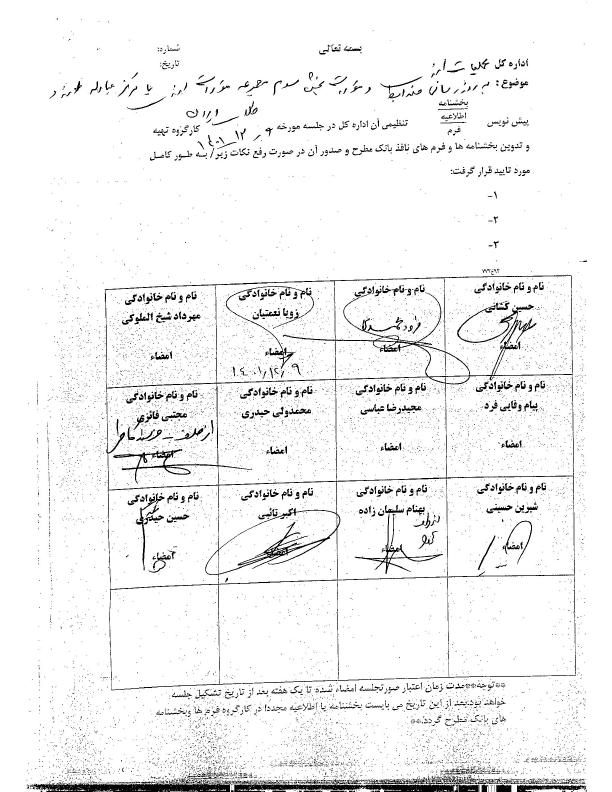 بسمه تعالی
شماره:
تاریخ:
اداره کل عملیات ارزی
موضوع: به روز رسانی ضوابط و مقررات بخش سوم مجموعه مقررات ارزی با مرکز مبادله طلا و ارز
ایران
بخشنامه
پیش نویس اطلاعیه تنظیمی آن اداره کل در جلسه مورخه ۱۴۰۱/۱۲/۹ کارگروه تهیه
فرم
و تدوین بخشنامه ها و فرم های نافذ بانک مطرح و صدور آن در صورت رفع نکات زیر/ به طور کامل
مورد تایید قرار گرفت:
۱-
۲-
۳-
نام و نام خانوادگی
حسین کشانی
امضاء
نام و نام خانوادگی
امضاء
نام و نام خانوادگی
زویا نعمتیان
امضاء
۱۴۰۱/۱۲/۹
نام و نام خانوادگی
مهرداد شیخ الملوکی
امضاء
نام و نام خانوادگی
پیام وفایی فرد
امضاء
نام و نام خانوادگی
مجیدرضا عباسی
امضاء
نام و نام خانوادگی
محمدولی حیدری
امضاء
نام و نام خانوادگی
مجتبی فائزی
از طرف
امضاء
نام و نام خانوادگی
شیرین حسینی
امضاء
نام و نام خانوادگی
بهنام سلیمان زاده
امضاء
نام و نام خانوادگی
اکبر تائبی
امضاء
نام و نام خانوادگی
حسین حیدری
امضاء
**توجه**مدت زمان اعتبار صورتجلسه امضاء شده تا یک هفته بعد از تاریخ تشکیل جلسه
خواهد بود.بعد از این تاریخ می بایست بخشنامه یا اطلاعیه مجددا در کارگروه فرم ها وبخشنامه
های بانک مطرح گردد.**